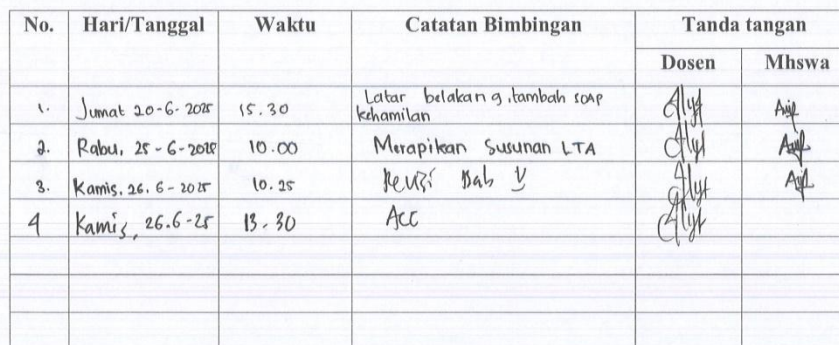 No. Hari/Tanggal Waktu Catatan Bimbingan Tanda tangan
Dosen Mhswa
1. Jumat 20-6-2025 15.30 Latar belakang, tambah SOAP
kehamilan
2. Rabu, 25-6-2025 10.00 Merapikan Susunan LTA
3. Kamis, 26.6-2025 10.25 Revisi Bab V
4 Kamis, 26.6-25 13.30 Acc